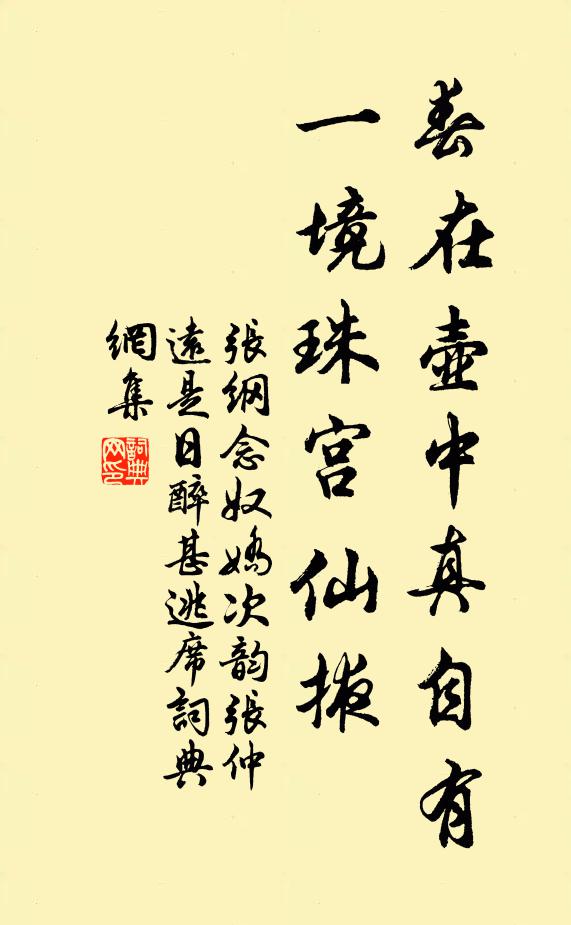 春在壺中真自有
一境珠宮仙掖
張綱念奴嬌次韵張仲
遠是日醉甚逃席詞典
網集
詞典網印